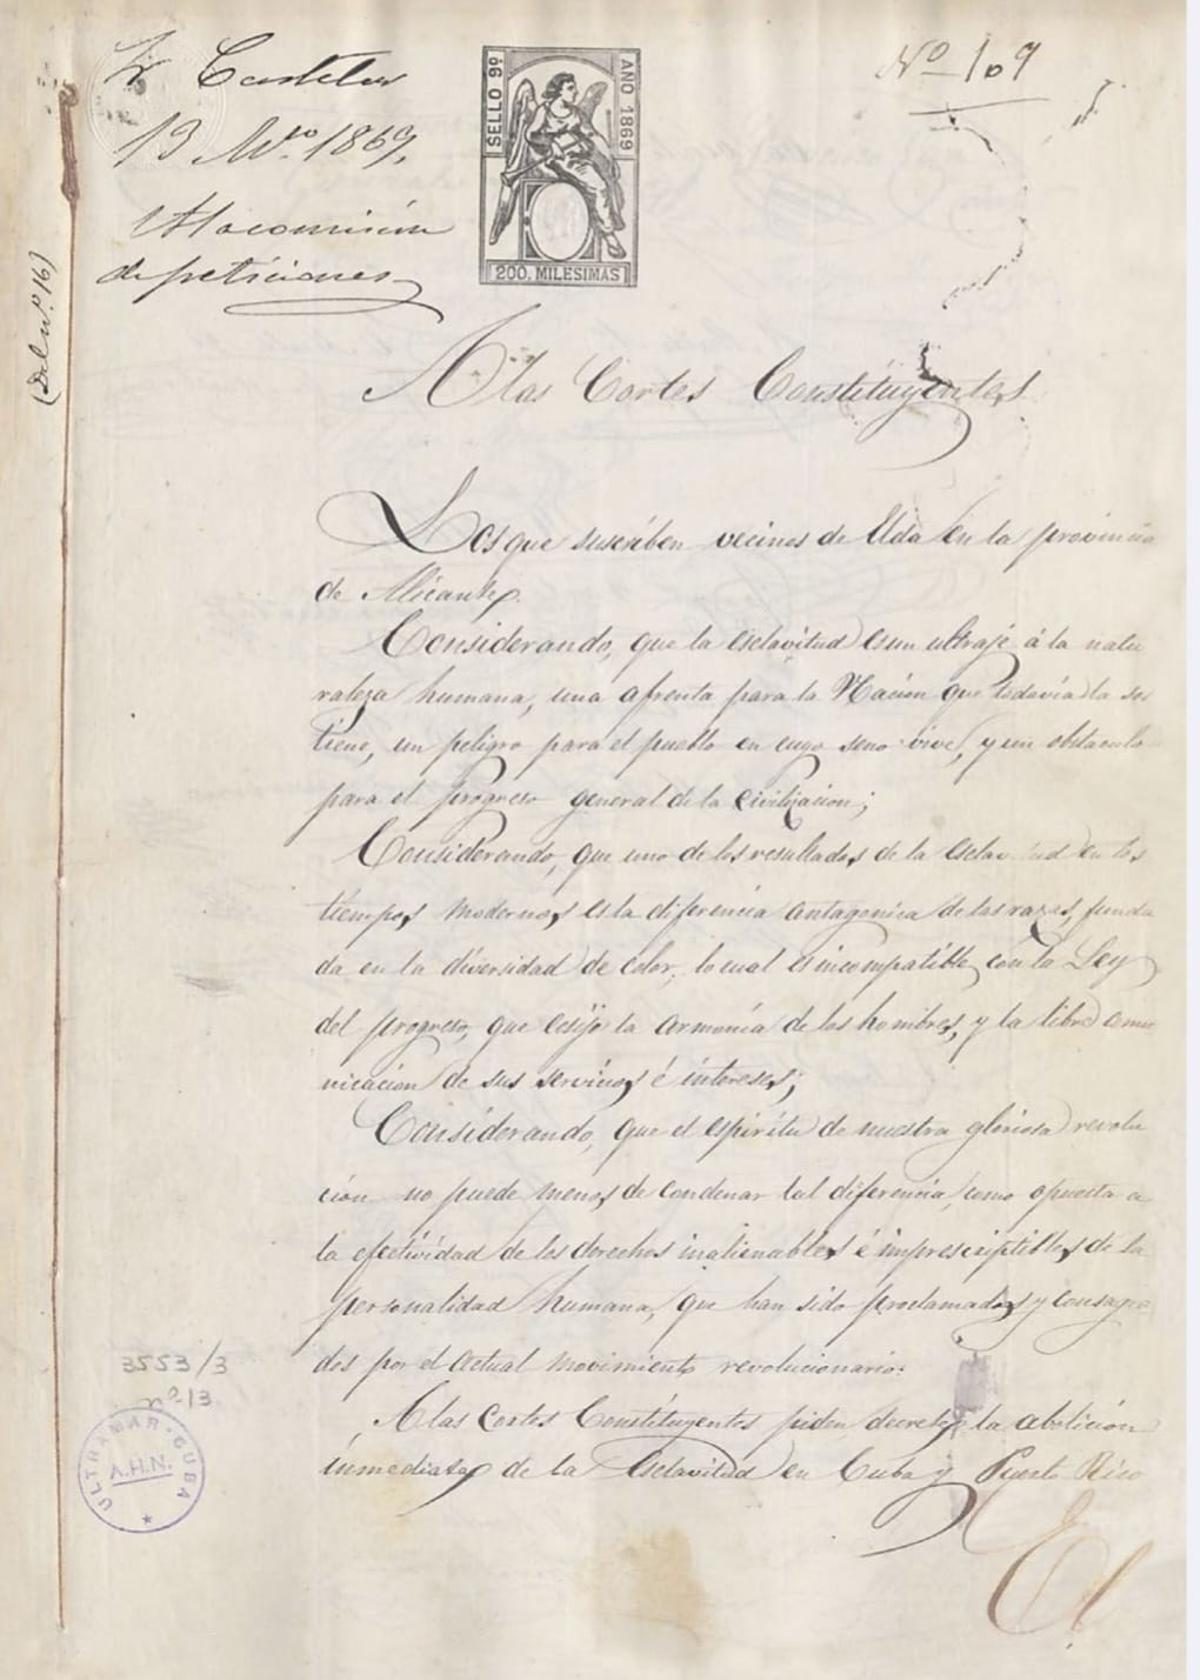 Sr Castelar
13 Mzo. 1869.
A la comision
de peticiones
SELLO 9º
AÑO 1869
200. MILESIMAS
Nº 109
(Del nº. 16)
A las Cortes Constituyentes
Los que suscriben vecinos de Elda en la provincia
de Alicante.
Considerando, que la esclavitud es un ultraje á la natu
raleza humana, una afrenta para la Nación que todavia la sos
tiene, un peligro para el pueblo en cuyo seno vive, y un obstaculo
para el progreso general de la civilizacion;
Considerando, que uno de los resultados de la esclavitud en los
tiempos modernos, es la diferencia antagonica de las razas, funda
da en la diversidad de color, lo cual es incompatible con la Ley
del progreso, que exije la armonía de los hombres, y la libre comu
nicacion de sus servicios é intereses;
Considerando, que el espiritu de nuestra gloriosa revolu
ción no puede menos de condenar tal diferencia, como opuesta a
la efectividad de los derechos inalienables é imprescriptibles de la
personalidad humana, que han sido proclamados y consagra
dos por el actual movimiento revolucionario:
A las Cortes Constituyentes piden decreten la abolición
inmediata de la Esclavitud en Cuba y Puerto Rico
El
3553/3
nº 13
ULTRAMAR-CUBA
A.H.N.